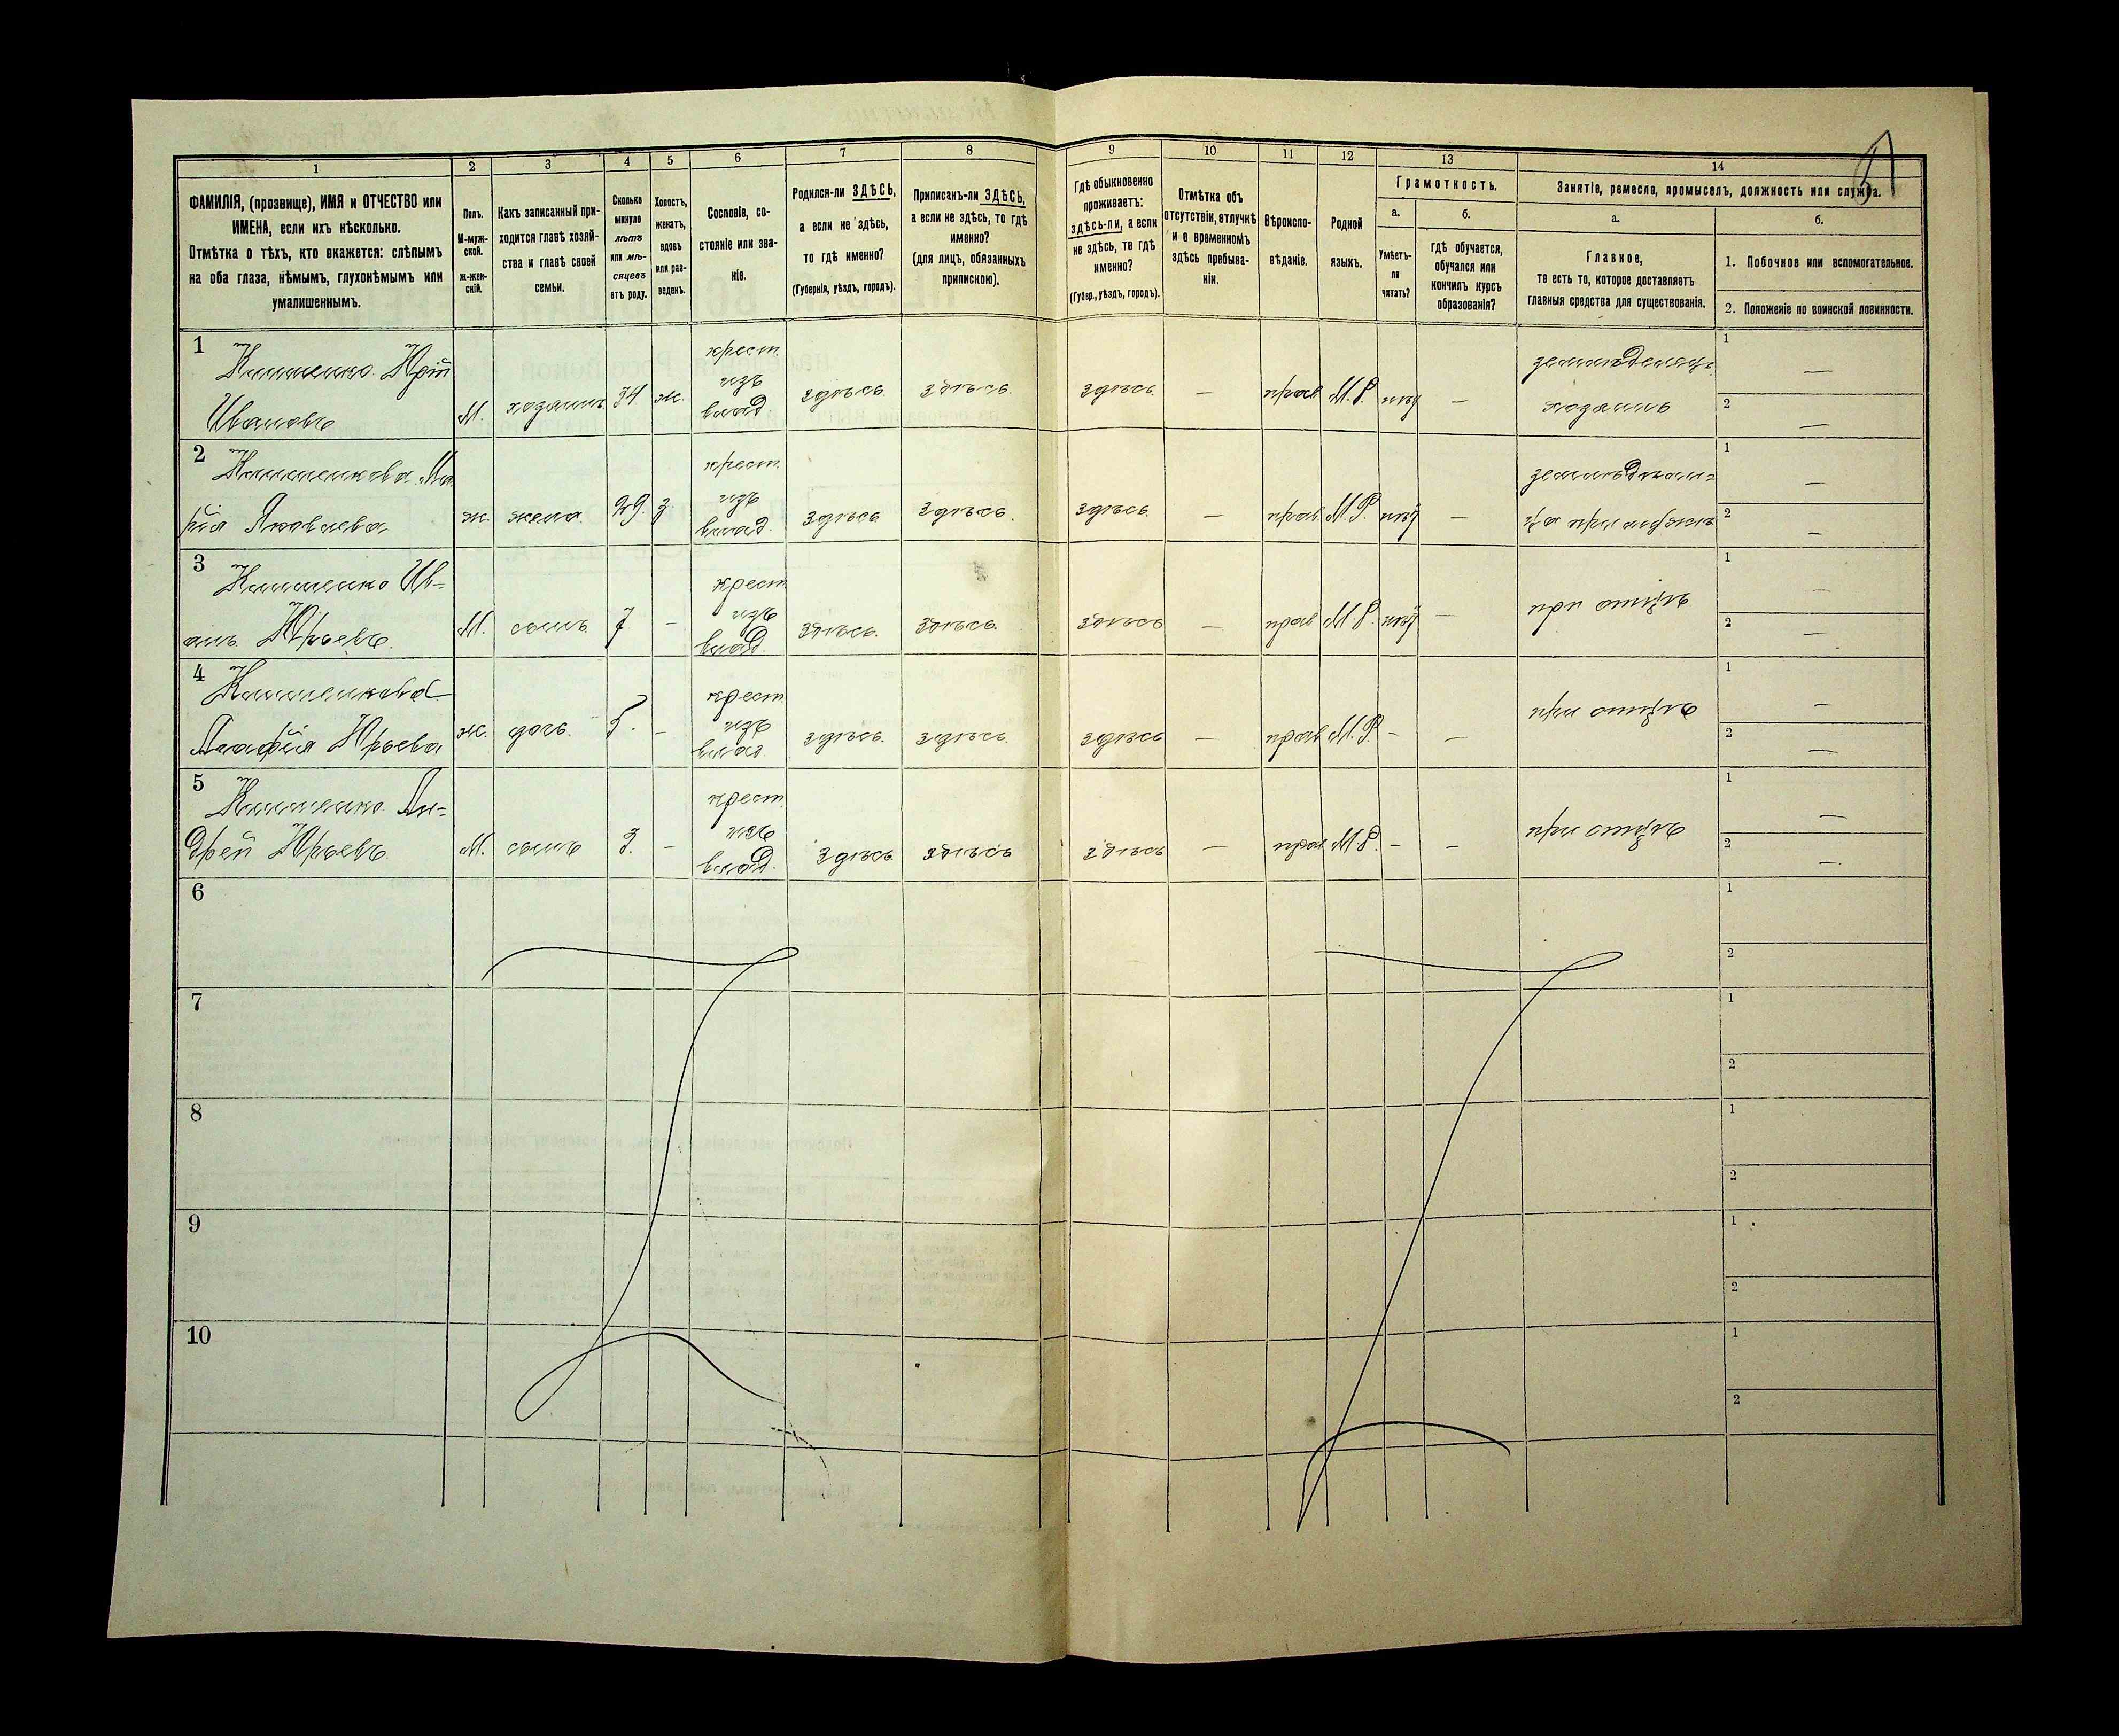 1
2
3
4
5
6
7
8
9
10
11
12
13
14
ФАМИЛІЯ, (прозвище), ИМЯ и ОТЧЕСТВО или
ИМЕНА, если ихъ нѣсколько.
Отмѣтка о тѣхъ, кто окажется: слѣпымъ
на оба глаза, нѣмымъ, глухонѣмымъ или
умалишеннымъ.
Полъ.
М-муж-
ской.
ж-жен-
скій.
Какъ записанный при-
ходится главѣ хозяй-
ства и главѣ своей
семьи.
Сколько
минуло
лѣтъ
или мѣ-
сяцевъ
отъ роду.
Холостъ,
женатъ,
вдовъ
или раз-
веденъ.
Сословіе, со-
стояніе или зва-
ніе.
Родился-ли ЗДѢСЬ,
а если не здѣсь,
то гдѣ именно?
(Губернія, уѣздъ, городъ).
Приписанъ-ли ЗДѢСЬ,
а если не здѣсь, то гдѣ
именно?
(для лицъ, обязанныхъ
припискою).
Гдѣ обыкновенно
проживаетъ:
здѣсь-ли, а если
не здѣсь, то гдѣ
именно?
(Губер., уѣздъ, городъ).
Отмѣтка объ
отсутствіи, отлучкѣ
и о временномъ
здѣсь пребыва-
ніи.
Вѣроиспо-
вѣданіе.
Родной
языкъ.
Грамотность.
а.
б.
Умѣетъ-
ли
читать?
гдѣ обучается,
обучался или
кончилъ курсъ
образованія?
Занятіе, ремесло, промыселъ, должность или служба.
а.
б.
Главное,
то есть то, которое доставляетъ
главныя средства для существованія.
1. Побочное или вспомогательное.
2. Положеніе по воинской повинности.
1
Юрій
Ивановъ
М.
хозяинъ
34
ж.
крест.
изъ
влад
здѣсь
здѣсь.
здѣсь
—
прав
М.Р.
—
хозяинъ
1
—
2
—
2
Ма
рія Яковлева
ж.
жена
29.
з.
крест.
изъ
влад.
здѣсь
здѣсь.
здѣсь
—
прав.
М.Р.
—
1
—
2
—
3
Ив-
анъ Юрьевъ.
М.
сынъ
7
-
крест
изъ
влад.
здѣсь.
здѣсь.
здѣсь
—
прав
М.Р.
—
при отцѣ
1
—
2
—
4
Агафія Юрьева
ж.
дочь.
5.
-
крест
изъ
влад.
здѣсь.
здѣсь
здѣсь
—
прав
М.Р.
-
—
при отцѣ
1
—
2
—
5
Ан-
дрей Юрьевъ
М.
сынъ
3.
-
крест.
изъ
влад.
здѣсь
здѣсь
здѣсь
—
прав
М.Р.
-
-
при отцѣ
1
—
2
—
6
1
2
7
1
2
8
1
2
9
1
2
10
1
2